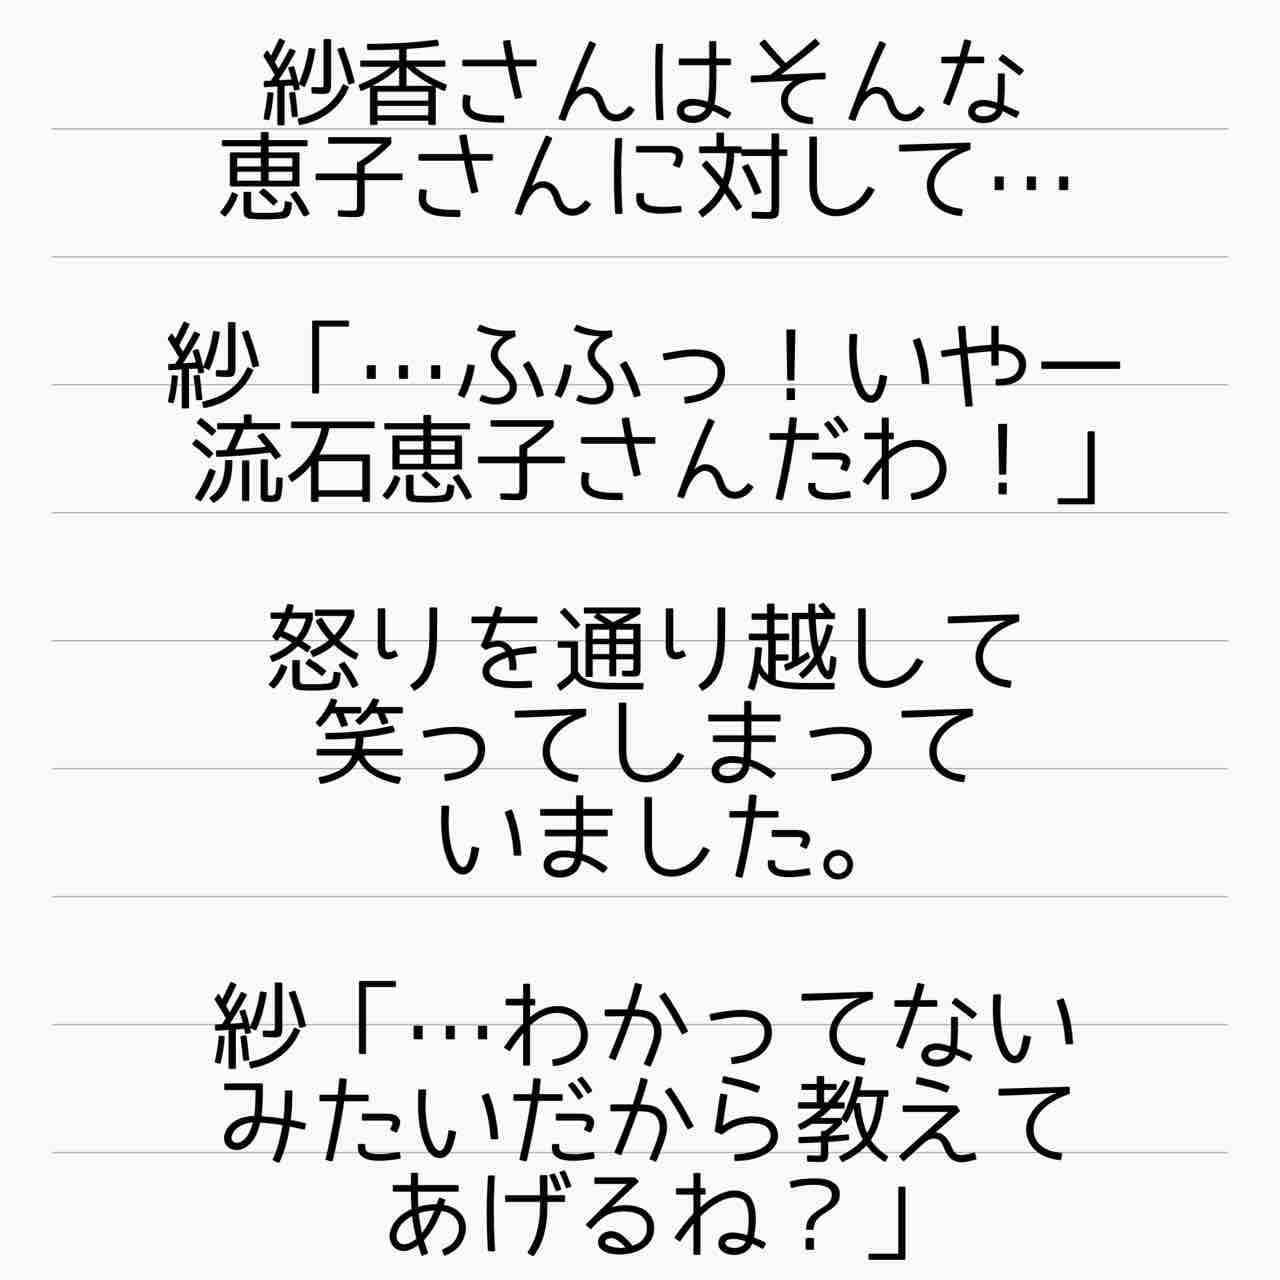 紗香さんはそんな
恵子さんに対して…
紗「…ふふっ！いやー
流石恵子さんだわ！」
怒りを通り越して
笑ってしまって
いました。
紗「…わかってない
みたいだから教えて
あげるね？」